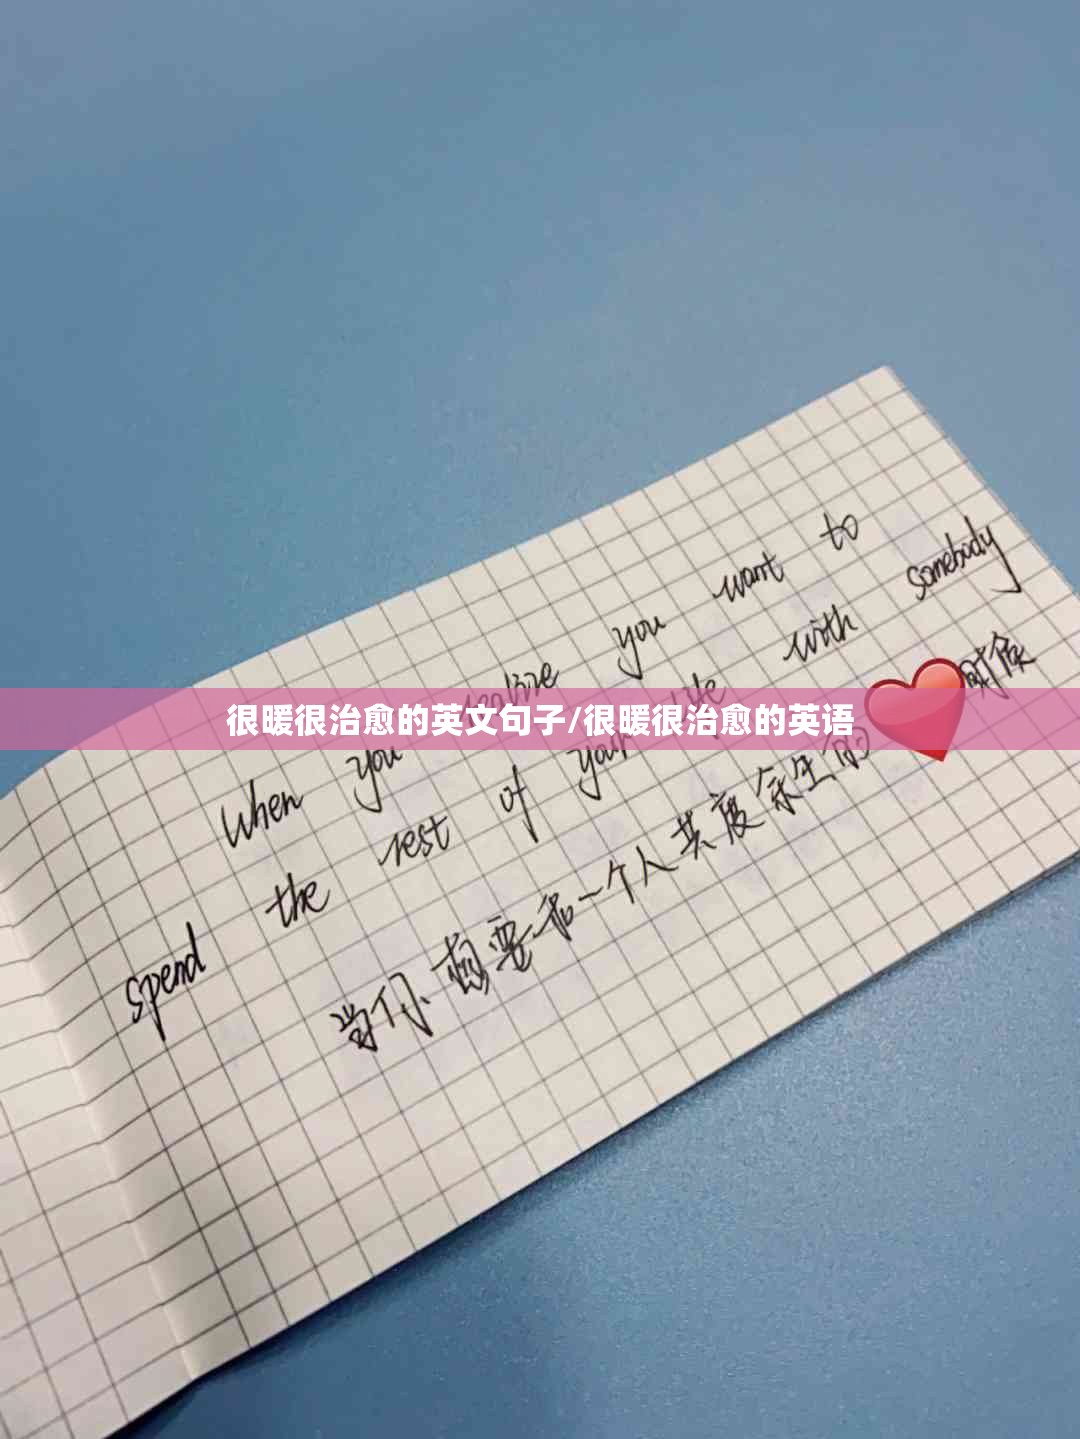 When you realize you want to
spend the rest of your life with somebody
当你想要和一个人共度余生的时候
很暖很治愈的英文句子/很暖很治愈的英语